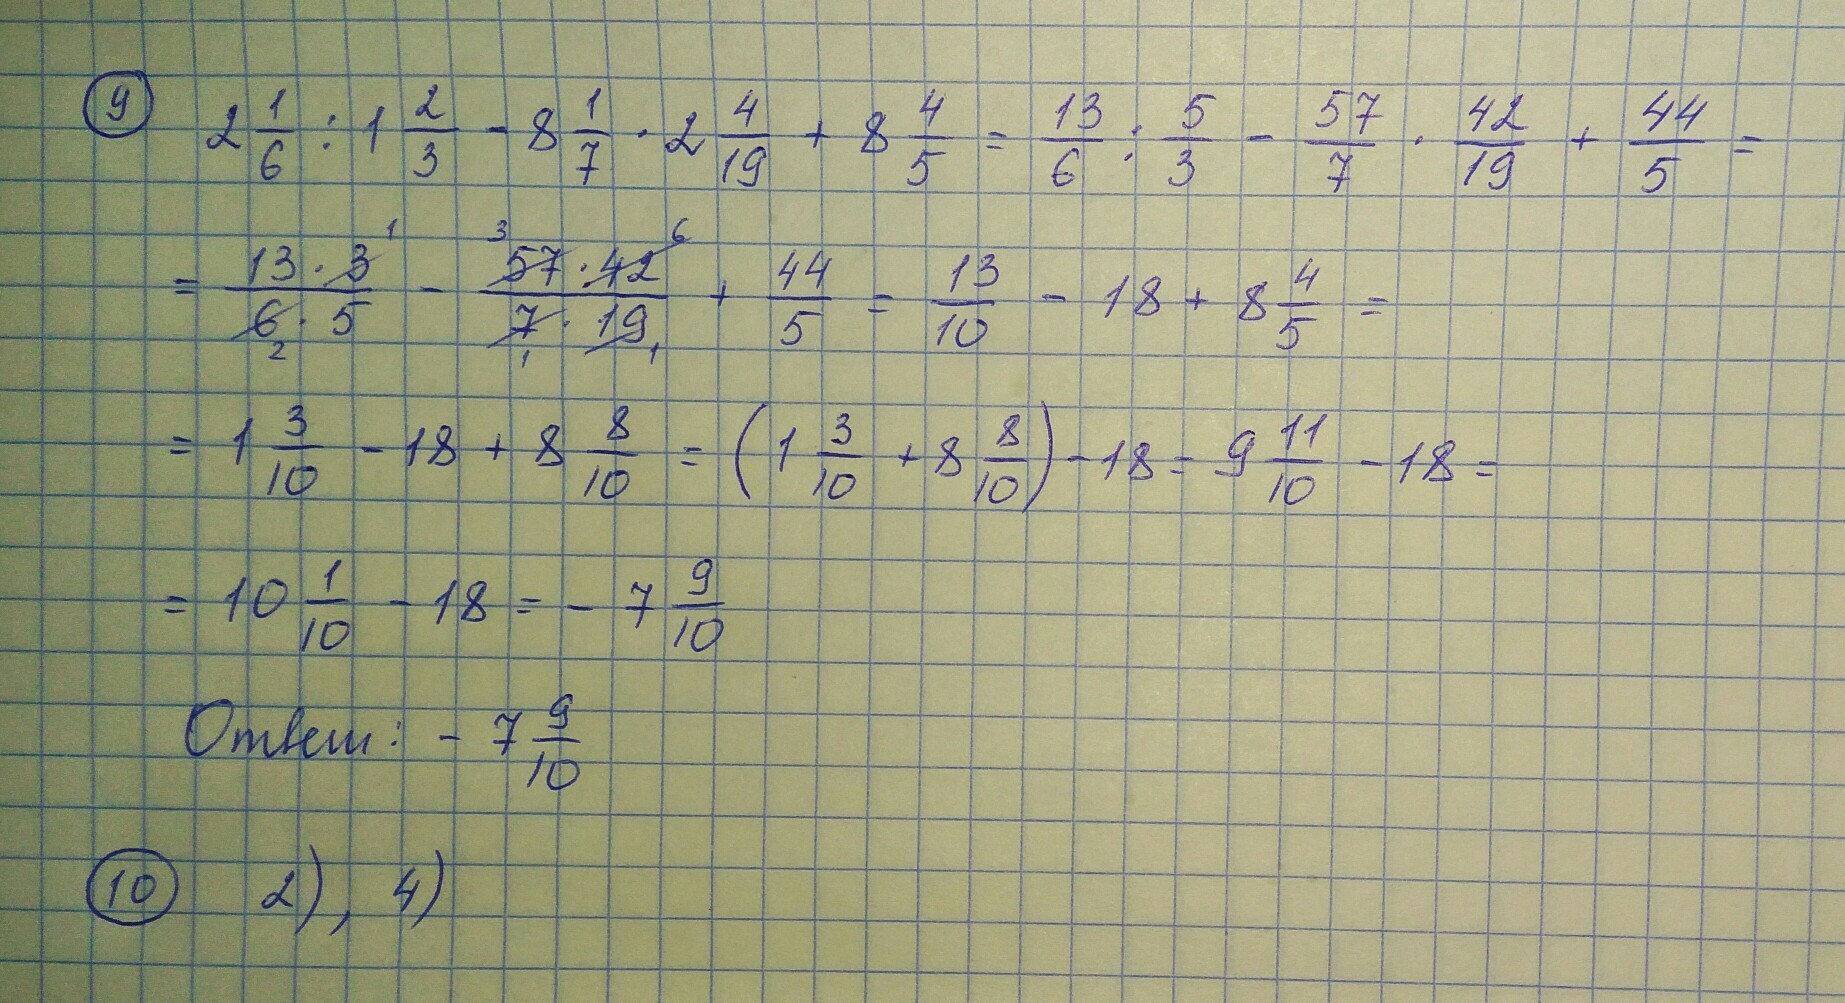 9 2 1/6 : 1 2/3 - 8 1/7 · 2 4/19 + 8 4/5 = 13/6 : 5/3 - 57/7 · 42/19 + 44/5 =
= 13 · 3 1 / 6 2 · 5 - 3 57 · 42 6 / 7 1 · 19 1 + 44/5 = 13/10 - 18 + 8 4/5 =
= 1 3/10 - 18 + 8 8/10 = (1 3/10 + 8 8/10) - 18 = 9 11/10 - 18 =
= 10 1/10 - 18 = - 7 9/10
Ответ: - 7 9/10
10 2), 4)